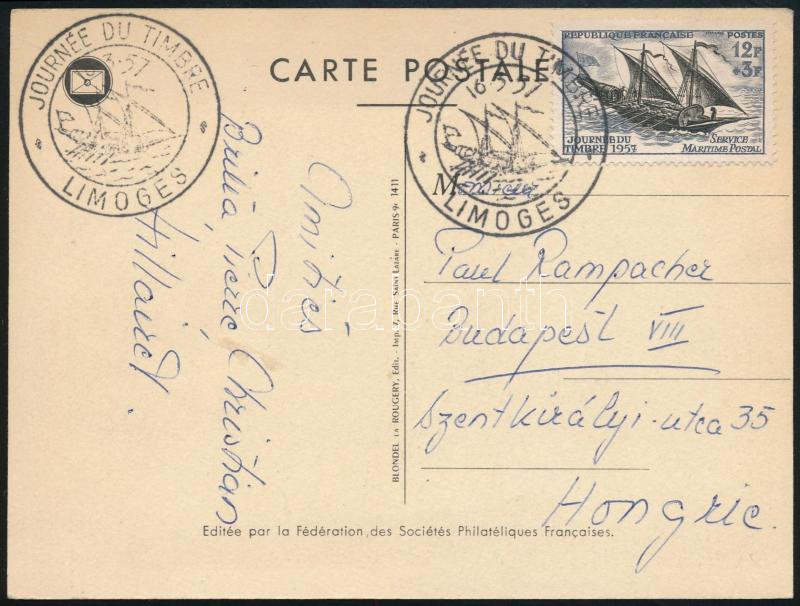 JOURNÉE DU TIMBRE
3-57
LIMOGES
CARTE POSTALE
JOURNÉE DU TIMBRE
16-3-57
LIMOGES
RÉPUBLIQUE FRANÇAISE POSTES
12F
+3F
JOURNÉE DU
TIMBRE 1957
SERVICE
MARITIME POSTAL
Monsieur
Paul Rampacher
Budapest VIII
Szentkirályi-utca 35
Hongrie.
Amitiés
Pierre Christian
BLONDEL LA ROUGERY, Edit. - Imp. 7, Rue SAINT LAZARE - PARIS 9e 1411
Editée par la Fédération des Sociétés Philatéliques Françaises.
darabanth